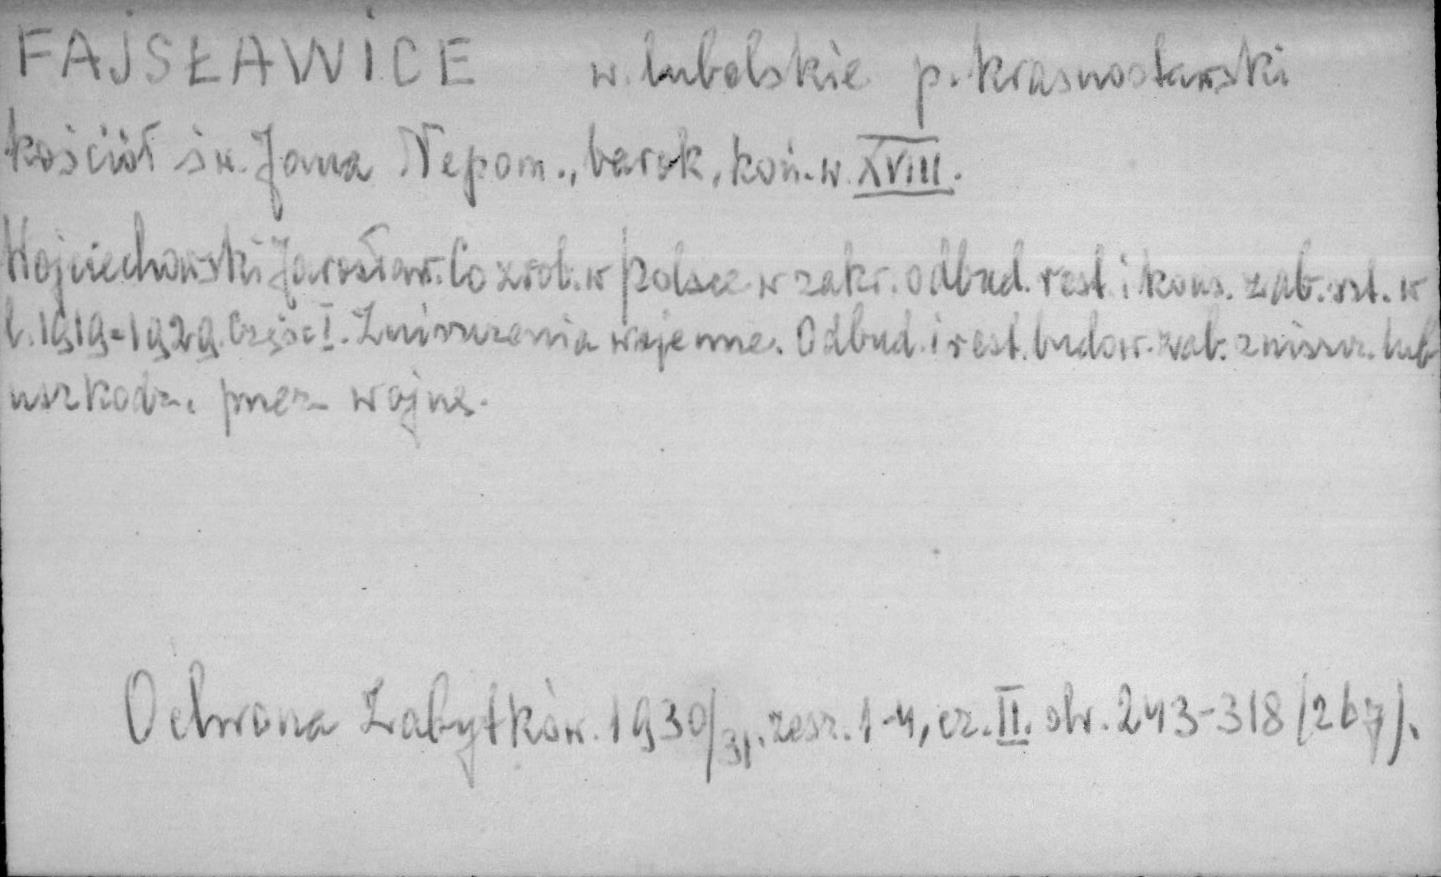 FAJSŁAWICE w. lubelskie p. krasnostawski
kościół św. Jana Nepom., barok, koń. w. XVIII.
Wojciechowski Jarosław. Co zrob. w Polsce w zakr. odbud. rest. i kons. zab. szt. w
l. 1919-1929. Część I. Zniszczenia wojenne. Odbud. i rest. budow. zab. zniszcz. lub
uszkodz. przez wojnę.
Ochrona Zabytków. 1930/31. zesz. 1-4, cz. II. str. 243-318 (267).